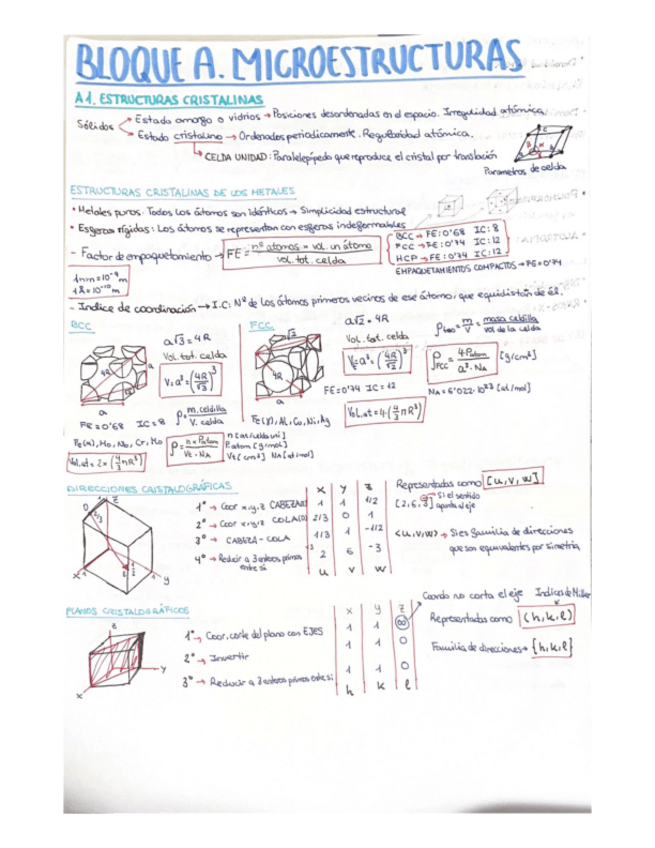 BLOQUE A. MICROESTRUCTURAS
A1. ESTRUCTURAS CRISTALINAS
Sólidos
Estado amorfo o vidrios → Posiciones desordenadas en el espacio. Irregularidad atómica
Estado cristalino → Ordenados periodicamente. Regularidad atómica.
CELDA UNIDAD: Paralelepípedo que reproduce el cristal por translación
Parametros de celda
ESTRUCTURAS CRISTALINAS DE LOS METALES
• Metales puros: Todos los átomos son idénticos → Simplicidad estructural
• Esferas rígidas: Los átomos se representan con esferas indeformables
- Factor de empaquetamiento → FE = nº atomos × vol. un átomo / vol. tot. celda
BCC → FE: 0'68 IC: 8
FCC → FE: 0'74 IC: 12
HCP → FE: 0'74 IC: 12
EMPAQUETAMIENTOS COMPACTOS → FE = 0'74
1nm = 10⁻⁹ m
1Å = 10⁻¹⁰ m
- Indice de coordinación → I.C: Nº de los átomos primeros vecinos de ese átomo, que equidistan de él.
BCC
a√3 = 4R
Vol. tot. celda
V = a³ = (4R/√3)³
4R
a
a
FE = 0'68 IC = 8
ρ = m. celdilla / V. celda
Fe(α), Mo, Nb, Cr, Mo
ρ = n × Patom / Vt · NA
n [at/celda uni]
Patom [g/mol]
Vt [cm³] NA [at/mol]
Vol. at = 2 × (4/3 π R³)
FCC
√2
a√2 = 4R
Vol. tot. celda
V = a³ = (4R/√2)³
4R
a
FE = 0'74 IC = 12
Fe(γ), Al, Cu, Ni, Ag
Vol. at = 4 · (4/3 π R³)
ρteo = m/V = masa celdilla / vol de la celda
ρFCC = 4 · Patom / a³ · NA [g/cm³]
NA = 6'022 · 10²³ [at/mol]
DIRECCIONES CRISTALOGRÁFICAS
1º → Coor x,y,z CABEZA
2º → Coor x,y,z COLA
3º → CABEZA - COLA
4º → Reducir a 3 enteros primos entre sí
x y z
1 1 1/2
2/3 0 1
1/3 1 -1/2
2 6 -3
u v w
Representadas como [u, v, w]
[2, 6, 3̄] → Si el sentido aparta el eje
<u, v, w> → Si es familia de direcciones
que son equivalentes por simetría
PLANOS CRISTALOGRÁFICOS
z
y
x
1º → Coor. corte del plano con EJES
2º → Invertir
3º → Reducir a 3 enteros primos entre sí
x y z
1 1 ∞
1 1 0
1 1 0
h k l
Cuando no corta el eje
Indices de Miller
Representadas como (h, k, l)
Familia de direcciones → {h, k, l}